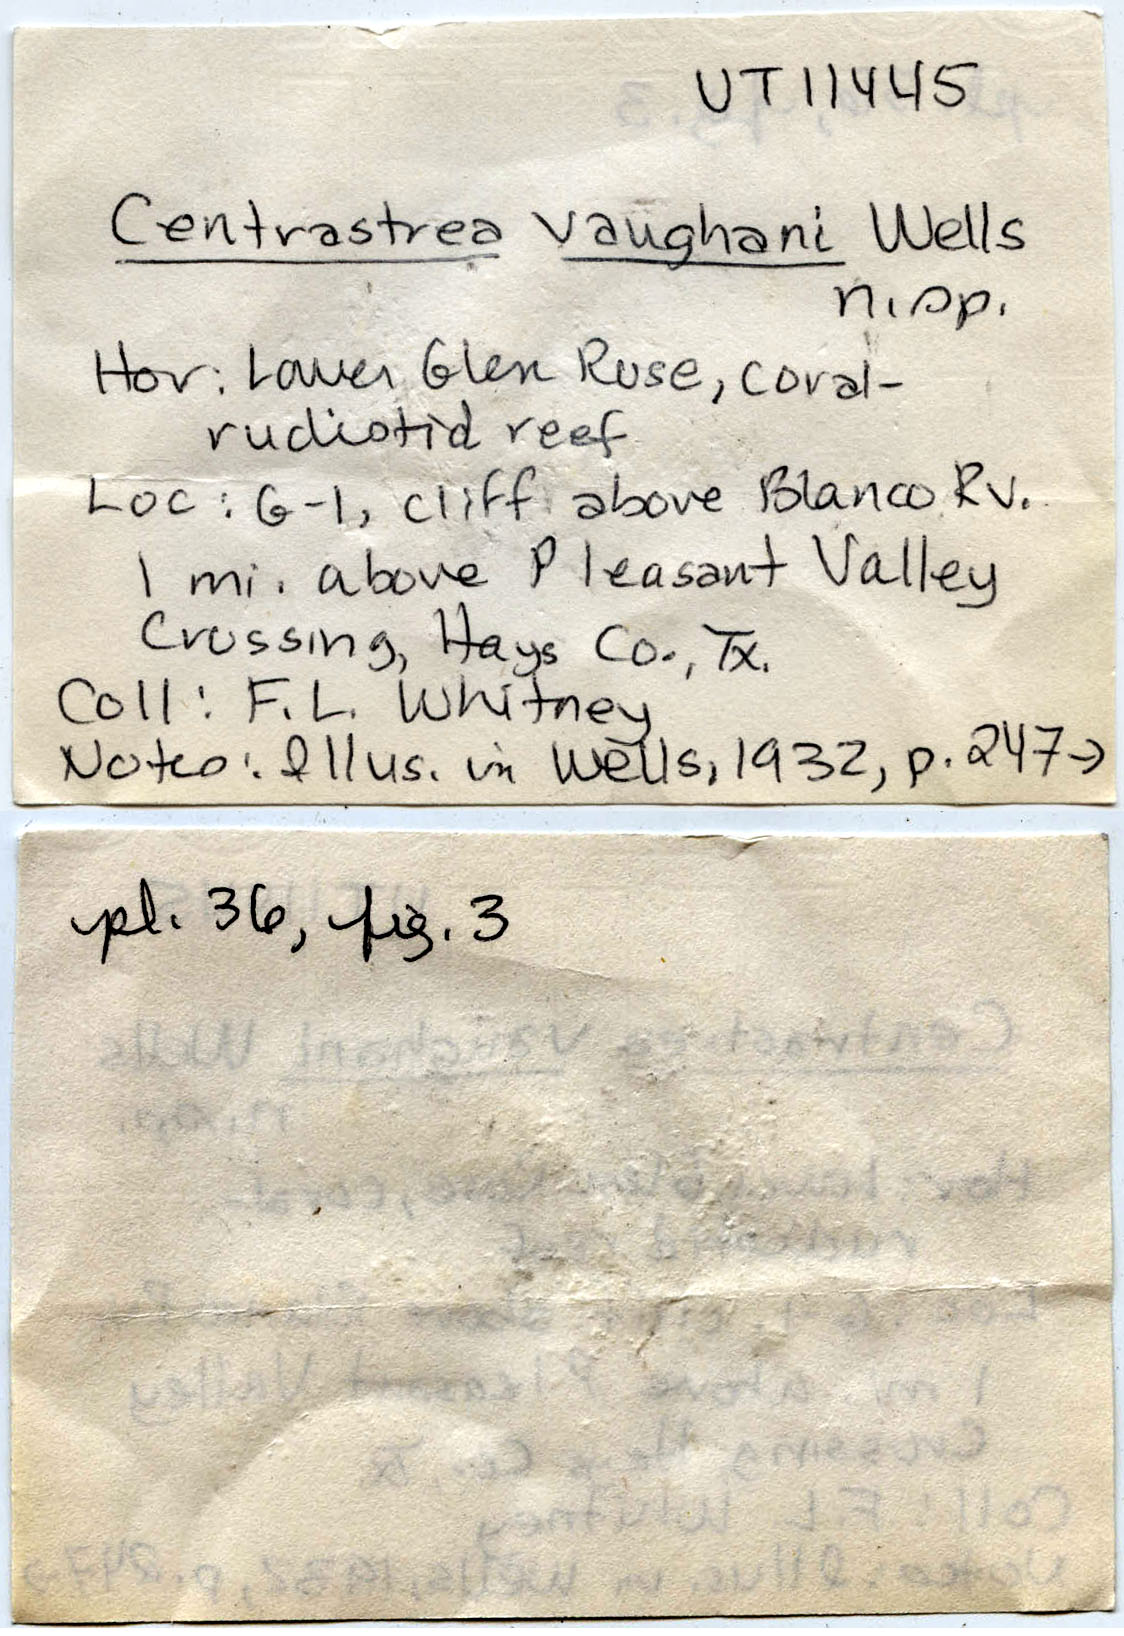 UT11445
Centrastrea vaughani Wells
n.sp.
Hor: Lower Glen Rose, coral-
rudistid reef
Loc: G-1, cliff above Blanco Rv.
1 mi. above Pleasant Valley
Crossing, Hays Co., Tx.
Coll: F.L. Whitney
Notes: Illus. in Wells, 1932, p. 247→
pl. 36, fig. 3